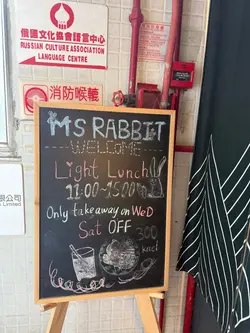 俄國文化協會語言中心
RUSSIAN CULTURE ASSOCIATION
LANGUAGE CENTRE
消防喉轆
MS RABBIT
WELCOME
Light Lunch
11:00-15:00
Only takeaway on WeD
Sat OFF
300
kcal
限公司
Limited